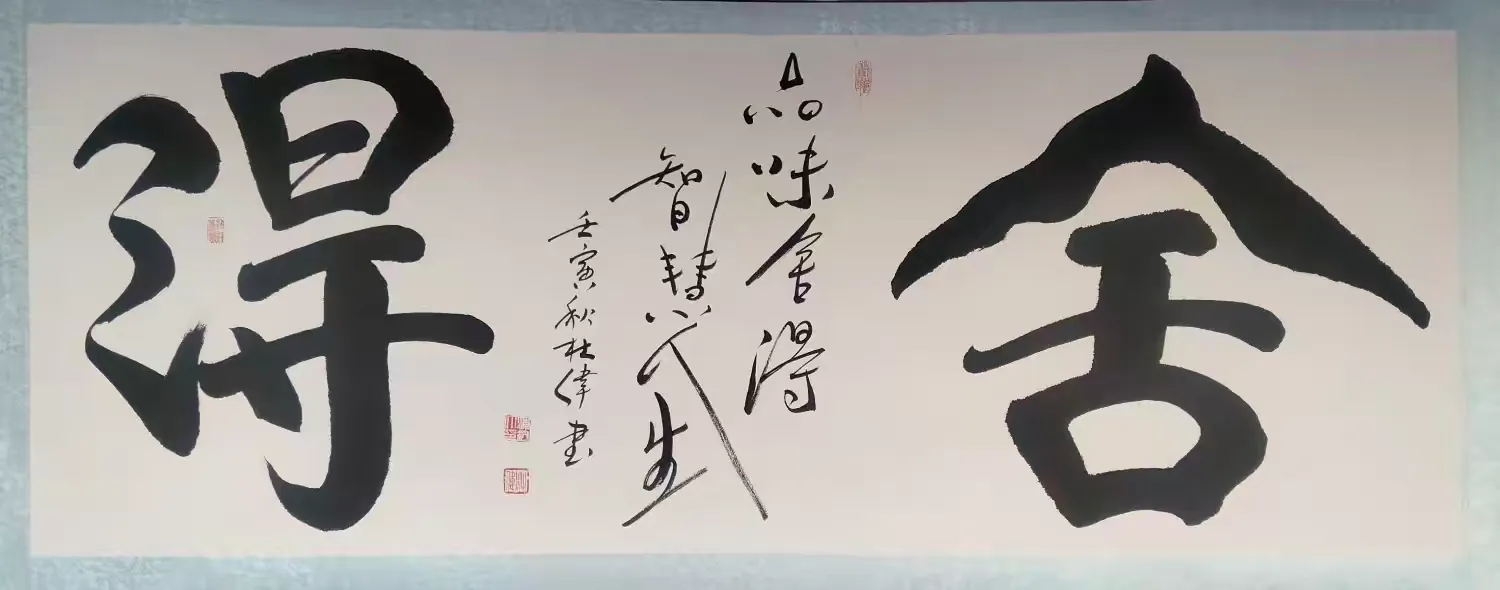 舍
品味舍得
智慧人生
壬寅秋杜伟書
得